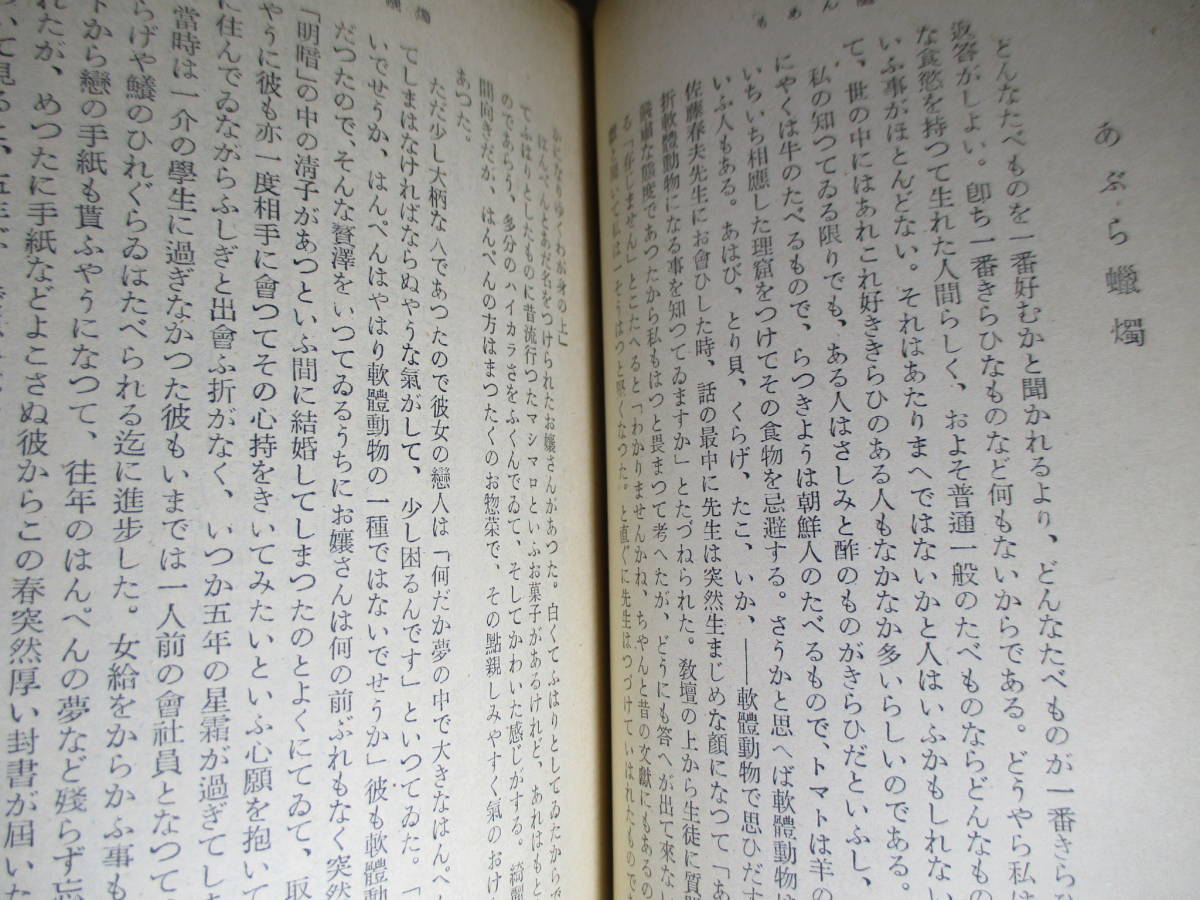 あぶら蠟燭
どんなたべものを一番好むかと聞かれるより、どんなたべものが一番きらひ
返答がしよい。卽ち一番きらひなものなど何もないからである。どうやら私は
な食慾を持つて生れた人間らしく、およそ普通一般のたべものならどんなもの
いふ事がほとんどない。それはあたりまへではないかと人はいふかもしれない
て、世の中にはあれこれ好ききらひのある人もなかなか多いらしいのである。
私の知つてゐる限りでも、ある人はさしみと酢のものがきらひだといふし、
にやくは牛のたべるもので、らつきようは朝鮮人のたべるもので、トマトは羊の
いちいち相應した理窟をつけてその食物を忌避する。さうかと思へば軟體動物は
いふ人もある。あはび、とり貝、くらげ、たこ、いか、――軟體動物で思ひだす
佐藤春夫先生にお會ひした時、話の最中に先生は突然生まじめな顏になつて「あ
折軟體動物になる事を知つてゐますか」とたづねられた。敎壇の上から生徒に質問
嚴肅な態度であつたから私もはつと畏まつて考へたが、どうにも答へが出て來ない
る「存じません」とこたへると「わかりませんかね、ちやんと昔の文獻にもあるの
と直ぐに先生はつづけていはれたもので
かになりゆくわが身の上」
はんぺんとあだ名をつけられたお孃さんがあつた。白くてふはりとしてゐたからで
てふはりとしたものに昔流行つたマシマロといふお菓子があるけれど、あれはもと
のであらう、多分のハイカラさをふくんでゐて、そしてかわいた感じがする。綺麗
間向きだが、はんぺんの方はまつたくのお惣菜で、その點親しみやすく氣のおけ
あつた。
ただ少し大柄な人であつたので彼女の戀人は「何だか夢の中で大きなはんぺん
てしまはなければならぬやうな氣がして、少し困るんです」といつてゐた。「
いでせうか、はんぺんはやはり軟體動物の一種ではないでせうか」彼も軟體動
だつたので、そんな贅澤をいつてゐるうちにお孃さんは何の前ぶれもなく突然
「明暗」の中の淸子があつといふ間に結婚してしまつたのとよくにてゐて、取
やうに彼も亦一度相手に會つてその心持をきいてみたいといふ心願を抱いて
に住んでゐながらふしぎと出會ふ折がなく、いつか五年の星霜が過ぎてしま
當時は一介の學生に過ぎなかつた彼もいまでは一人前の會社員となつて
らげや鱶のひれぐらゐはたべられる迄に進步した。女給をからかふ事も
トから戀の手紙も貰ふやうになつて、往年のはんぺんの夢など殘らず忘
れたが、めつたに手紙などよこさぬ彼からこの春突然厚い封書が屆いた